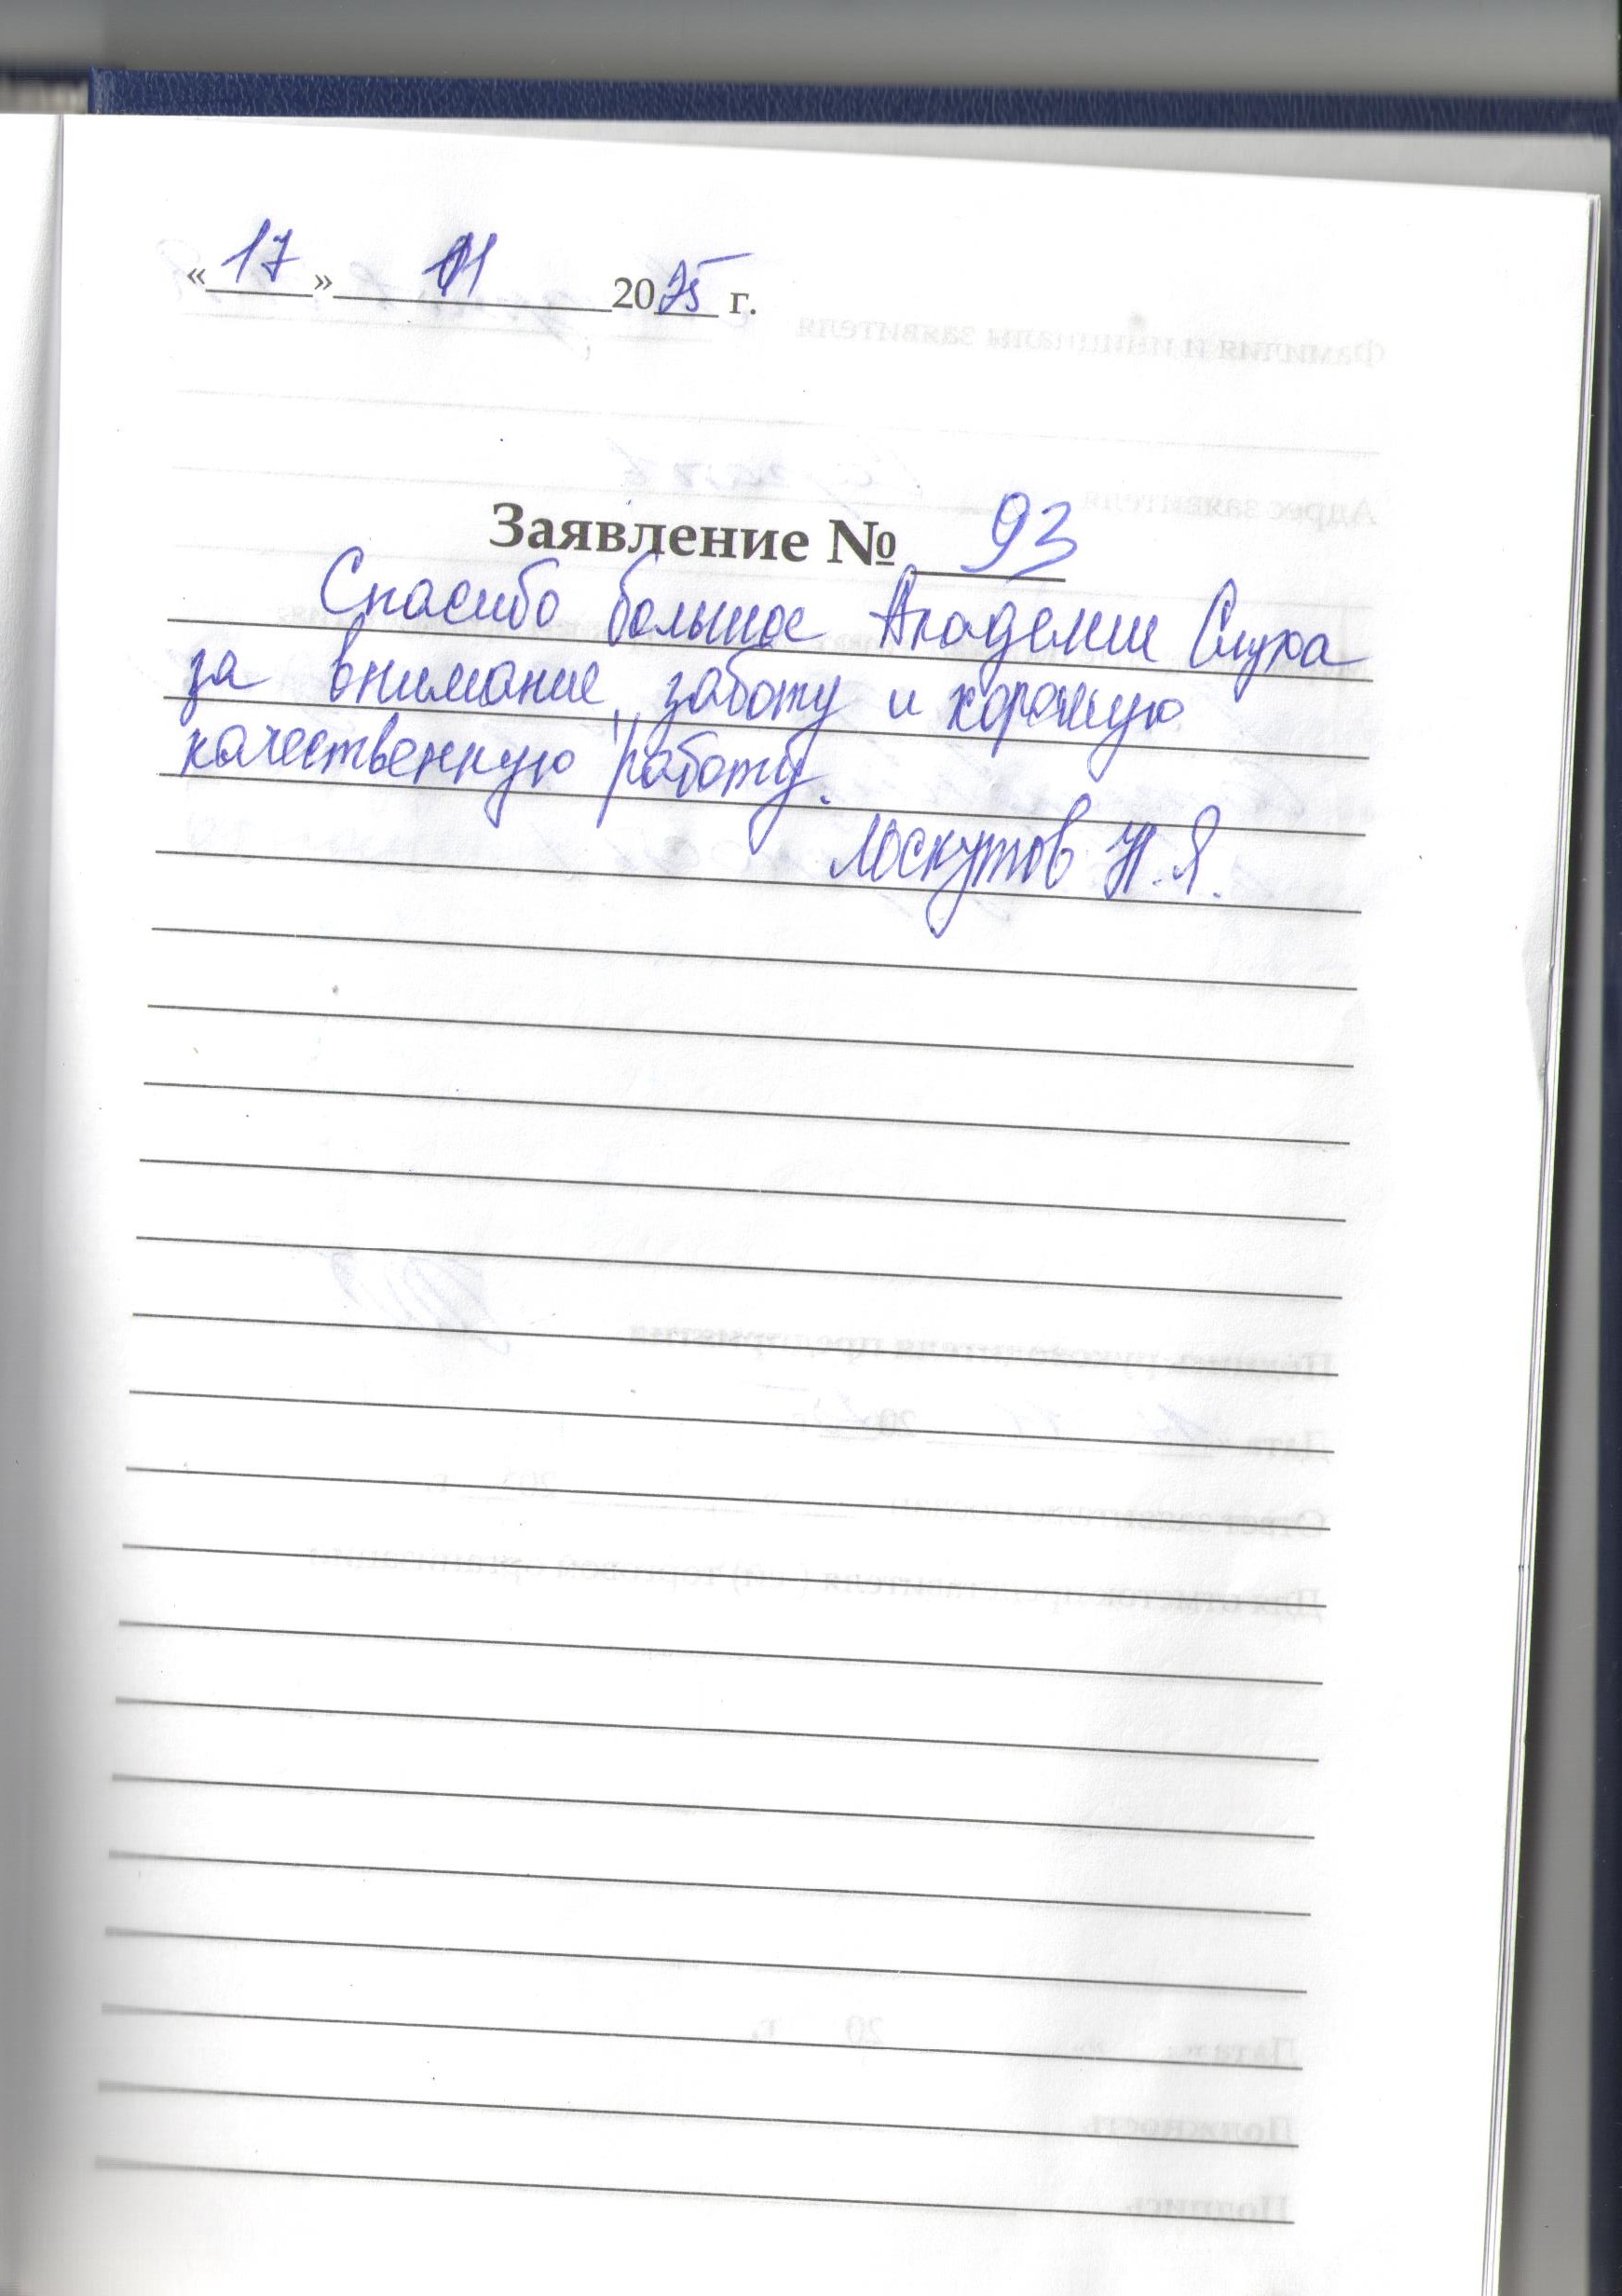 «17» 01 2025 г.
Заявление № 93
Спасибо большое Академии Слуха
за внимание, заботу и хорошую
качественную работу.
Лоскутов Я.